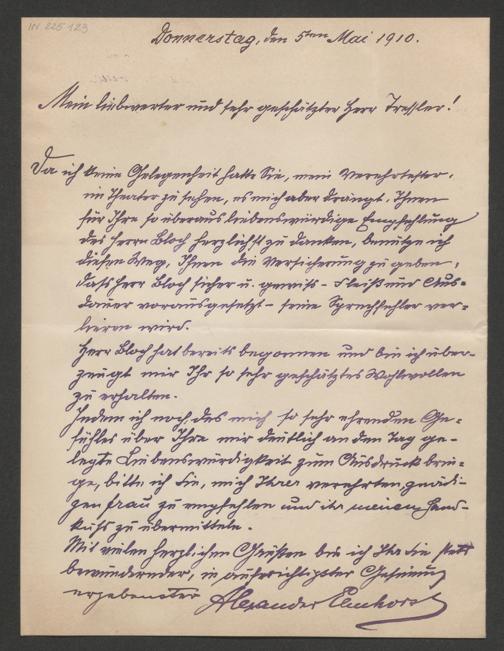 IN 225.123
Donnerstag, den 5ten Mai 1910.
Mein liebwerter und sehr geschätzter Herr Tressler!
Da ich keine Gelegenheit hatte Sie, mein Verehrtester,
im Theater zu sehen, es mich aber drängt, Ihnen
für Ihre so überaus liebenswürdige Empfehlung
des Herrn Bloch herzlichst zu danken, benütze ich
diesen Weg, Ihnen die Versicherung zu geben,
dass Herr Bloch sicher u. gewiss – Fleiss und Aus-
dauer vorausgesetzt – seine Sprachfehler ver-
lieren wird.
Herr Bloch hat bereits begonnen und bin ich über-
zeugt mir Ihr so sehr geschätztes Wohlwollen
zu erhalten.
Indem ich noch des mich so sehr ehrenden Ge-
fühles über Ihre mir deutlich an den Tag ge-
legte Liebenswürdigkeit zum Ausdruck brin-
ge, bitte ich Sie, mich Ihrer verehrten, gnädi-
gen Frau zu empfehlen und ihr meinen Hand-
kuss zu übermitteln.
Mit vielen herzlichen Grüssen bin ich Ihr Sie stets
bewundernder, in aufrichtigster Gesinnung
ergebenster Alexander